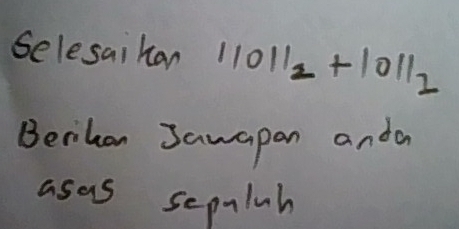 Selesaikan 11011₂ + 1011₂
Berikan Jawapan anda
asas sepuluh